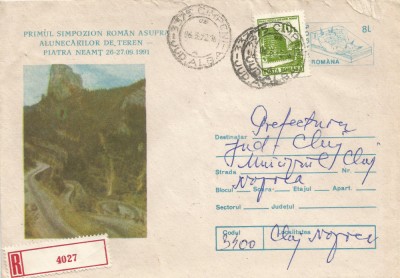 PRIMUL SIMPOZION ROMÂN ASUPRA
ALUNECĂRILOR DE TEREN -
PIATRA NEAMȚ 26-27.09 1991
8L
ROMÂNA
POSTA ROMANA
JUD. ALBA
Destinatar Prefectura
Jud. Cluj
Strada Municipiul Cluj
Napoca
Blocul Scara Etajul Apart.
Sectorul Județul
Codul Localitatea
3400 Cluj Napoca
R 4027